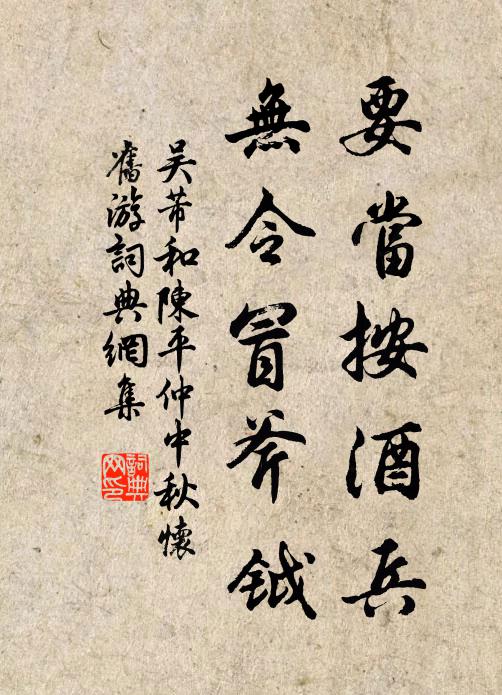 要當按酒兵
無令冒斧鉞
吴芾和陳平仲中秋懷
舊游詞典網集
詞典
网印